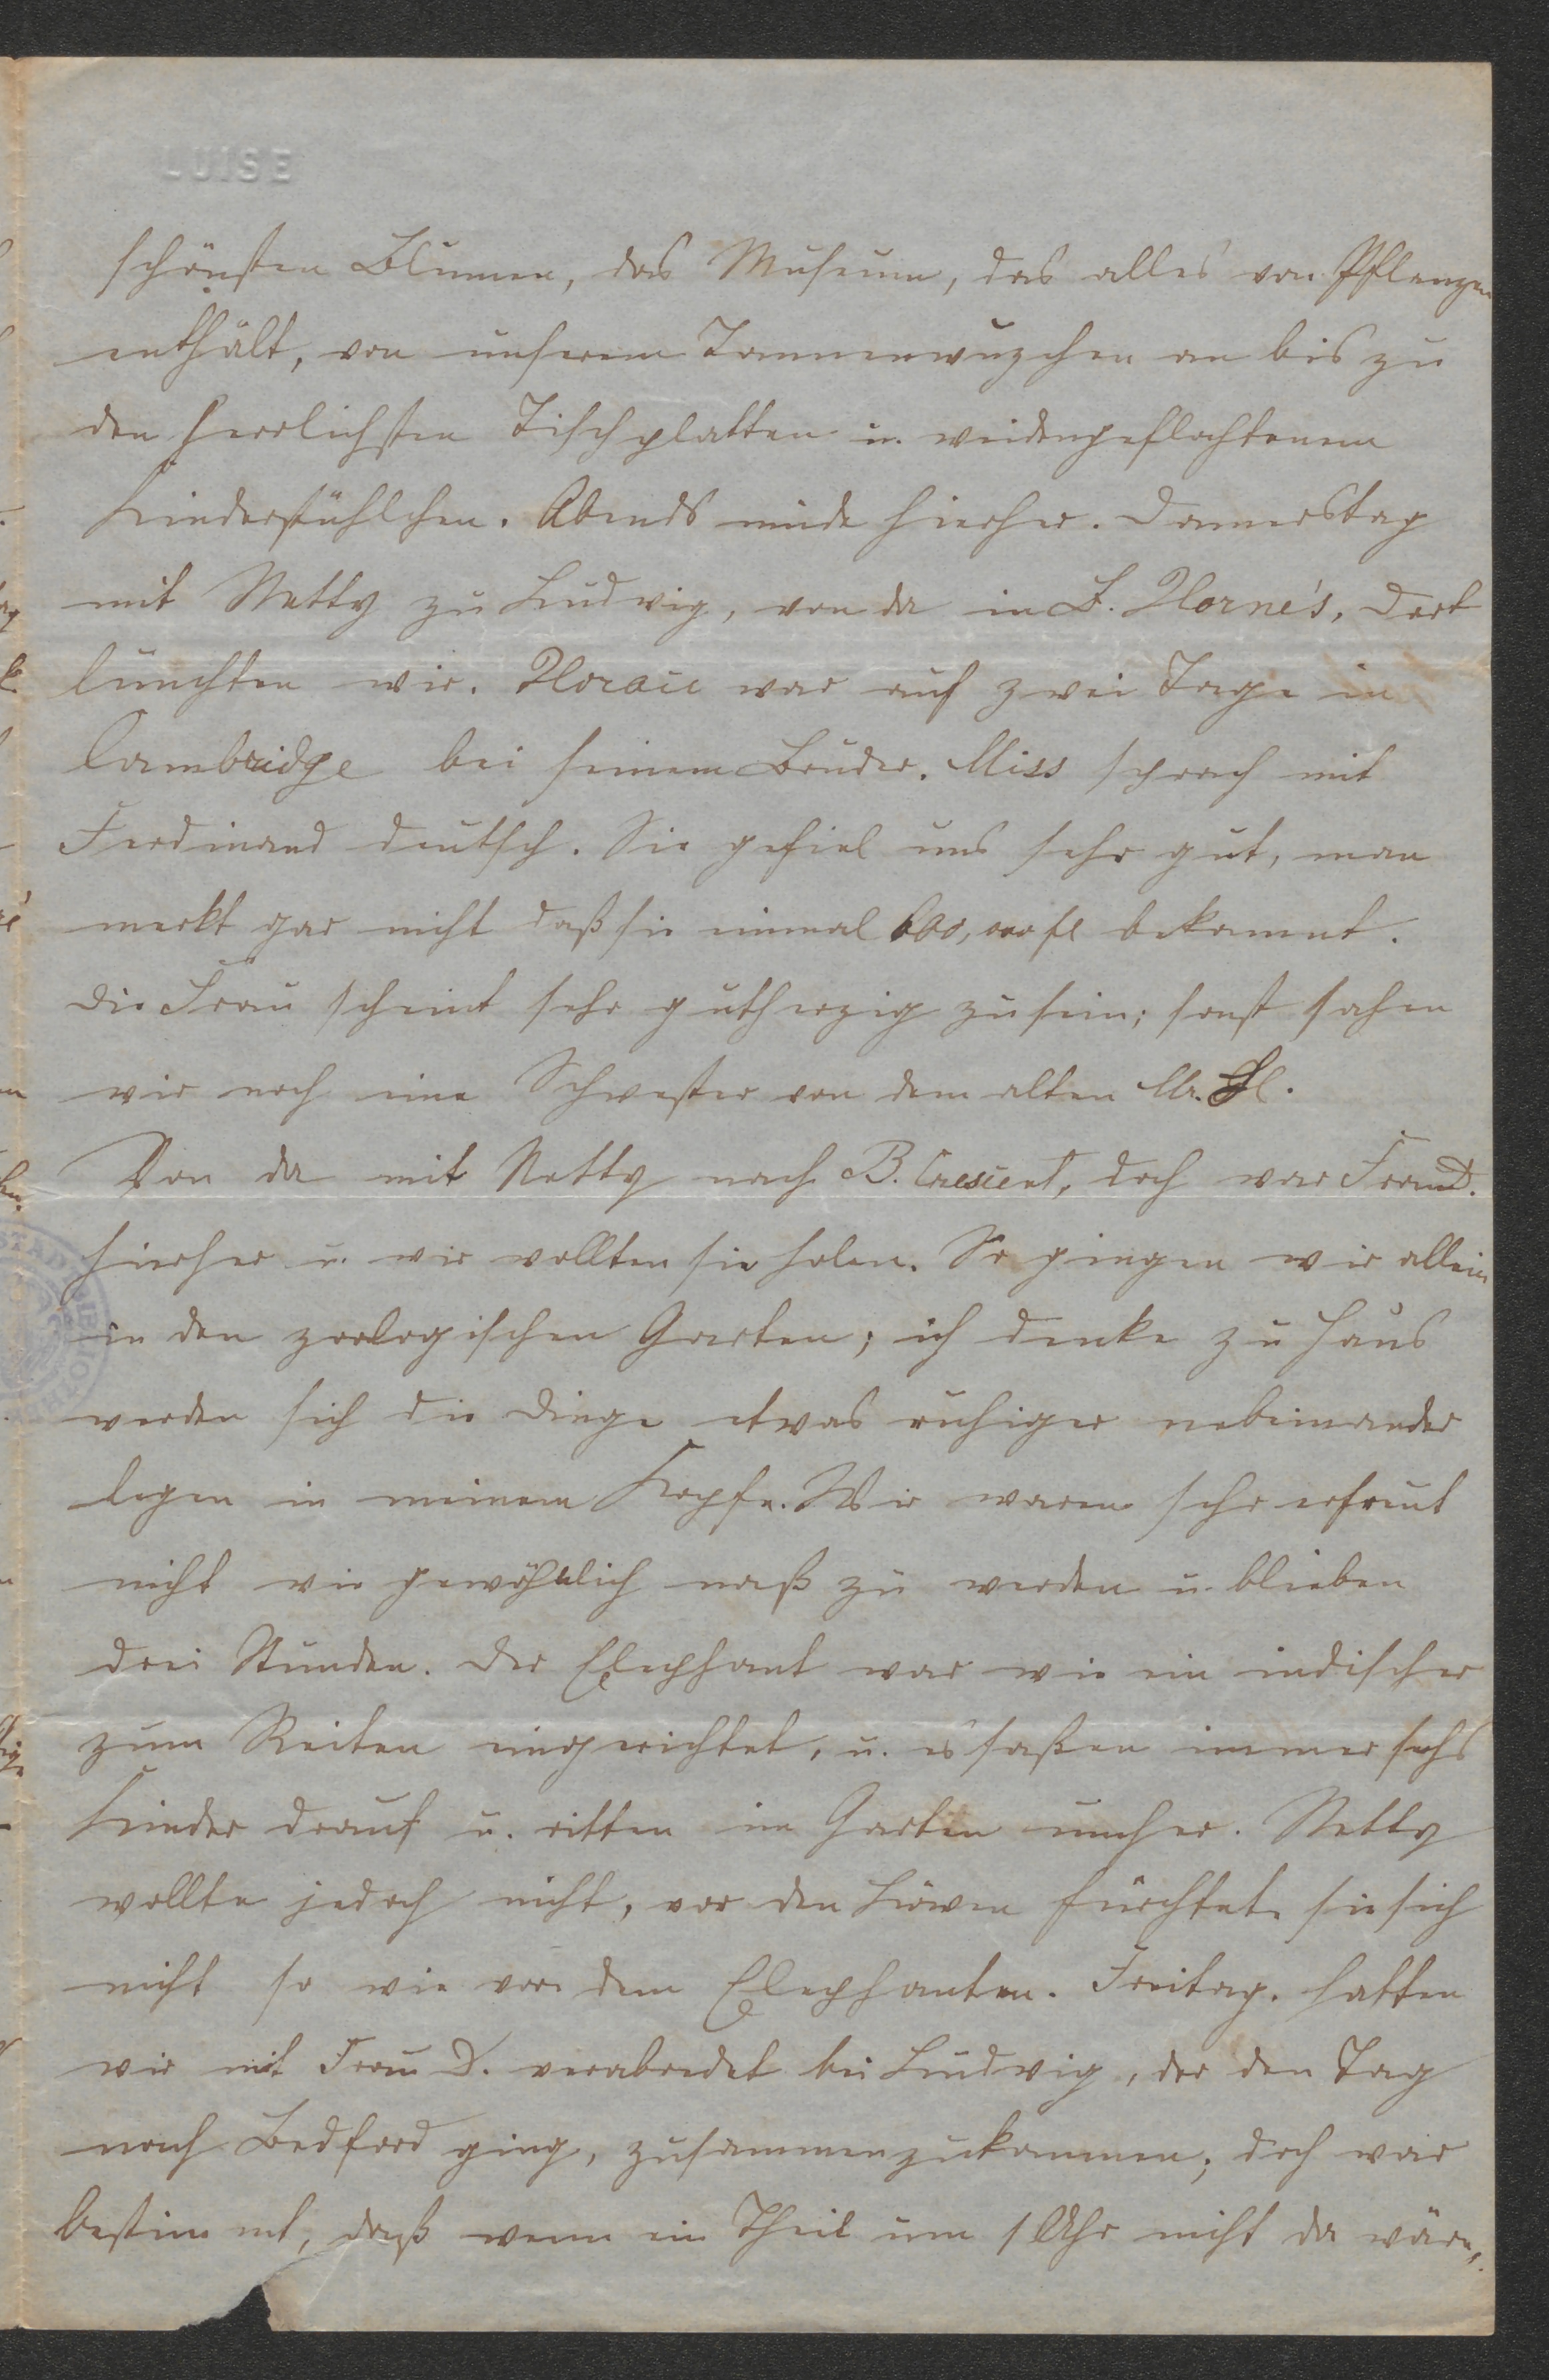 LUISE
schönsten Blumen, das Museum, das alles von Pflanzen
enthält, von unserem Tannenwuzchen an bis zu
den herrlichsten Tischplatten u. weidengeflochtenem
Kinderstühlchen. Abends müde hierher. Donnerstag
mit Netty zu Ludwig, von da in L. Horne's, dort
lunchten wir. Horace war auf zwei Tage in
Cambridge bei seinem Bruder. Miss sprach mit
Ferdinand deutsch. Sie gefiel uns sehr gut, man
merkt gar nicht daß sie einmal 600,000 fl bekommt.
Die Frau scheint sehr gutherzig zu sein; sonst sahen
wir noch eine Schwester von dem alten Mr. H.
Von da mit Netty nach B. Crescent, doch war Frau D.
hierher u. wir wollten sie holen. So gingen wir allein
in den zoologischen Garten; ich denke zu Haus
werden sich die Dinge etwas ruhiger nebeinander
legen in meinem Kopfe. Wir waren sehr erfreut
nicht wie gewöhnlich naß zu werden u. blieben
drei Stunden. Der Elephant war wie ein indischer
zum Reiten eingerichtet, u. es saßen immer sechs
Kinder drauf u. ritten im Garten umher. Netty
wollte jedoch nicht, vor den Löwen fürchtete sie sich
nicht so wie vor dem Elephanten. Freitag hatten
wir mit Frau D. verabredet bei Ludwig, der den Tag
nach Bedford ging, zusammenzukommen; doch war
bestimmt, daß wenn ein Theil um 1 Uhr nicht da wäre,